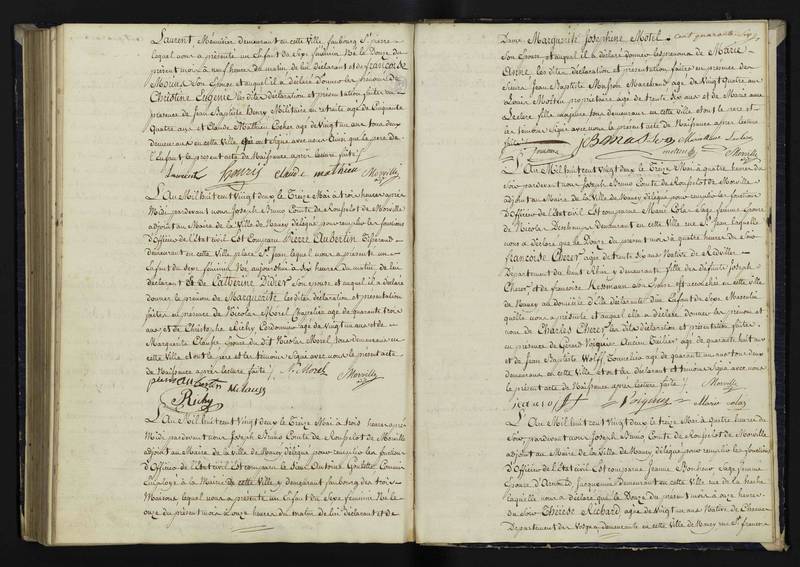 Laurent, Mémisier demeurant en cette Ville, faubourg St pierre
lequel nous a présenté un Enfant du Sexe féminin Né le Douze du
présent mois à neuf heures du matin, de lui déclarant et de françoise
son Epouse et auquel il a déclaré donner les prénoms de
Christine Eugenie les dites déclaration et présentation faites en
présence de Jean Baptiste Henry Militaire en retraite agé de Cinquante
Quatre ans et Claude Matthieu Cocher agé de Vingt un ans tous deux
demeurans en cette Ville, qui ont signé avec nous ainsi que le pere de
l'Enfant le présent acte de Naissance après lecture faite /.
Laurent henris claude mathieu Morville
L'An Mil huit cent Vingt deux le Treize Mai à trois heures après
Midi pardevant nous Joseph Bruno Comte de Rouselot de Morville
adjoint au Maire de la Ville de Nancy délégué pour remplir les fonctions
d'Officier de l'Etat civil Est comparu Pierre Aubertin
demeurant en cette Ville place St Jean lequel nous a présenté un
Enfant du Sexe féminin Né aujourd'hui à six heures du matin, de lui
déclarant et de Catherine Didier son Epouse et auquel il a déclaré
donner le prénom de Marguerite les dites déclaration et présentation
faites en présence de Nicolas Morel Chapelier agé de quarante trois
ans et de Christophe Richy Cordonnier agé de Vingt un ans et de
Marguerite Epouse du dit Nicolas Morel tous demeurans en
cette Ville et ont le pere et les témoins signé avec nous le present acte
de Naissance après lecture faite /. Ns Morel Morville
pierre aubertin
Richy
L'An Mil huit cent Vingt deux le Treize Mai à trois heures après
Midi pardevant nous Joseph Bruno Comte de Rouselot de Morville
adjoint au Maire de la Ville de Nancy délégué pour remplir les fonctions
d'Officier de l'Etat civil Est comparu le Sieur Antoine Commis
Employé à la Mairie de cette Ville y demeurant faubourg des trois
Maisons lequel nous a présenté un Enfant du Sexe féminin Né le
onze du présent mois à onze heures du matin de lui déclarant et de
cent quarante Sept
Dame Marguerite Josephine Motel
son Epouse et auquel il a déclaré donner les prénoms de Marie
Anne, les dites déclaration et présentation faites en présence des
Sieurs Jean Baptiste Marchand agé de Vingt Quatre ans
Louis propriétaire agé de trente six ans et de Marie anne
Leclerc fille majeure tous demeurans en cette Ville et ont le pere et
les témoins signé avec nous le présent acte de Naissance après lecture
faite /.
Morville
L'An Mil huit cent Vingt deux le Treize Mai à quatre heures du
Soir pardevant nous Joseph Bruno Comte de Rouselot de Morville
adjoint au Maire de la Ville de Nancy délégué pour remplir les fonctions
d'Officier de l'Etat civil Est comparue Marie Colas Sage femme Epouse
de Nicolas demeurant en cette Ville rue St Jean laquelle
nous a déclaré que le Douze du présent mois à quatre heures du Soir
françoise Cherer agée de trente six ans Native de
Département du haut Rhin y demeurante fille des défunts Joseph
Cherer et de françoise son Epouse est accouchée en cette Ville
de Nancy au domicile d'Elle déclarante d'un Enfant du Sexe Masculin
qu'elle nous a présenté et auquel elle a déclaré donner les prénom et
nom de Charles Cherer les dites déclaration et présentation faites
en présence de Gérard Voignier Ancien agé de quarante huit ans
et de Jean Baptiste Wolff Tonnelier agé de quarante un ans tous deux
demeurans en cette Ville, et ont la déclarant et témoins signé avec nous
le présent acte de Naissance après lecture faite /. Morville
Marie colas
L'An Mil huit cent Vingt deux le Treize Mai à Quatre heures du
Soir pardevant nous Joseph Bruno Comte de Rouselot de Morville
adjoint au Maire de la Ville de Nancy délégué pour remplir les fonctions
d'Officier de l'Etat civil Est comparue Jeanne Bonhour Sage femme
Epouse d'Arnould Jacquemin demeurant en cette Ville rue de la hache
laquelle nous a déclaré que le Douze du présent mois à onze heures
du Soir Thérèse Richard agée de Vingt un ans Native de
Département des Vosges, demeurante en cette Ville de Nancy rue St francois